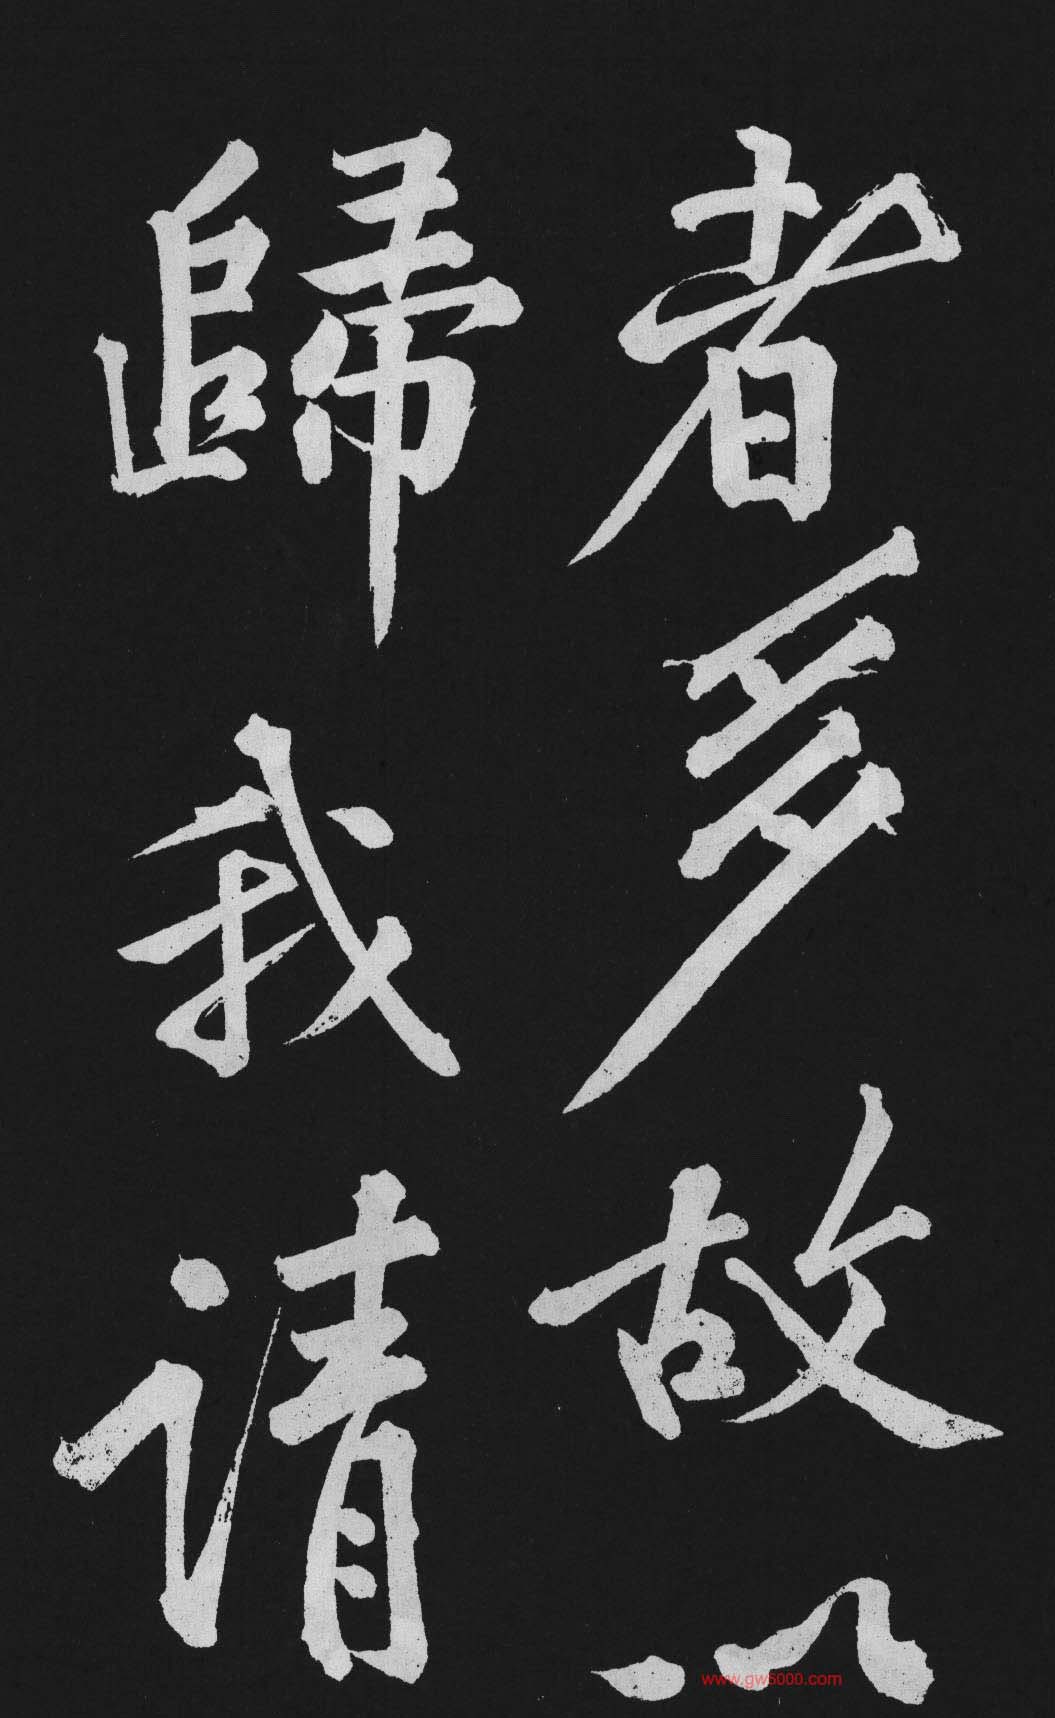 者多故以
歸我請
www.gw5000.com